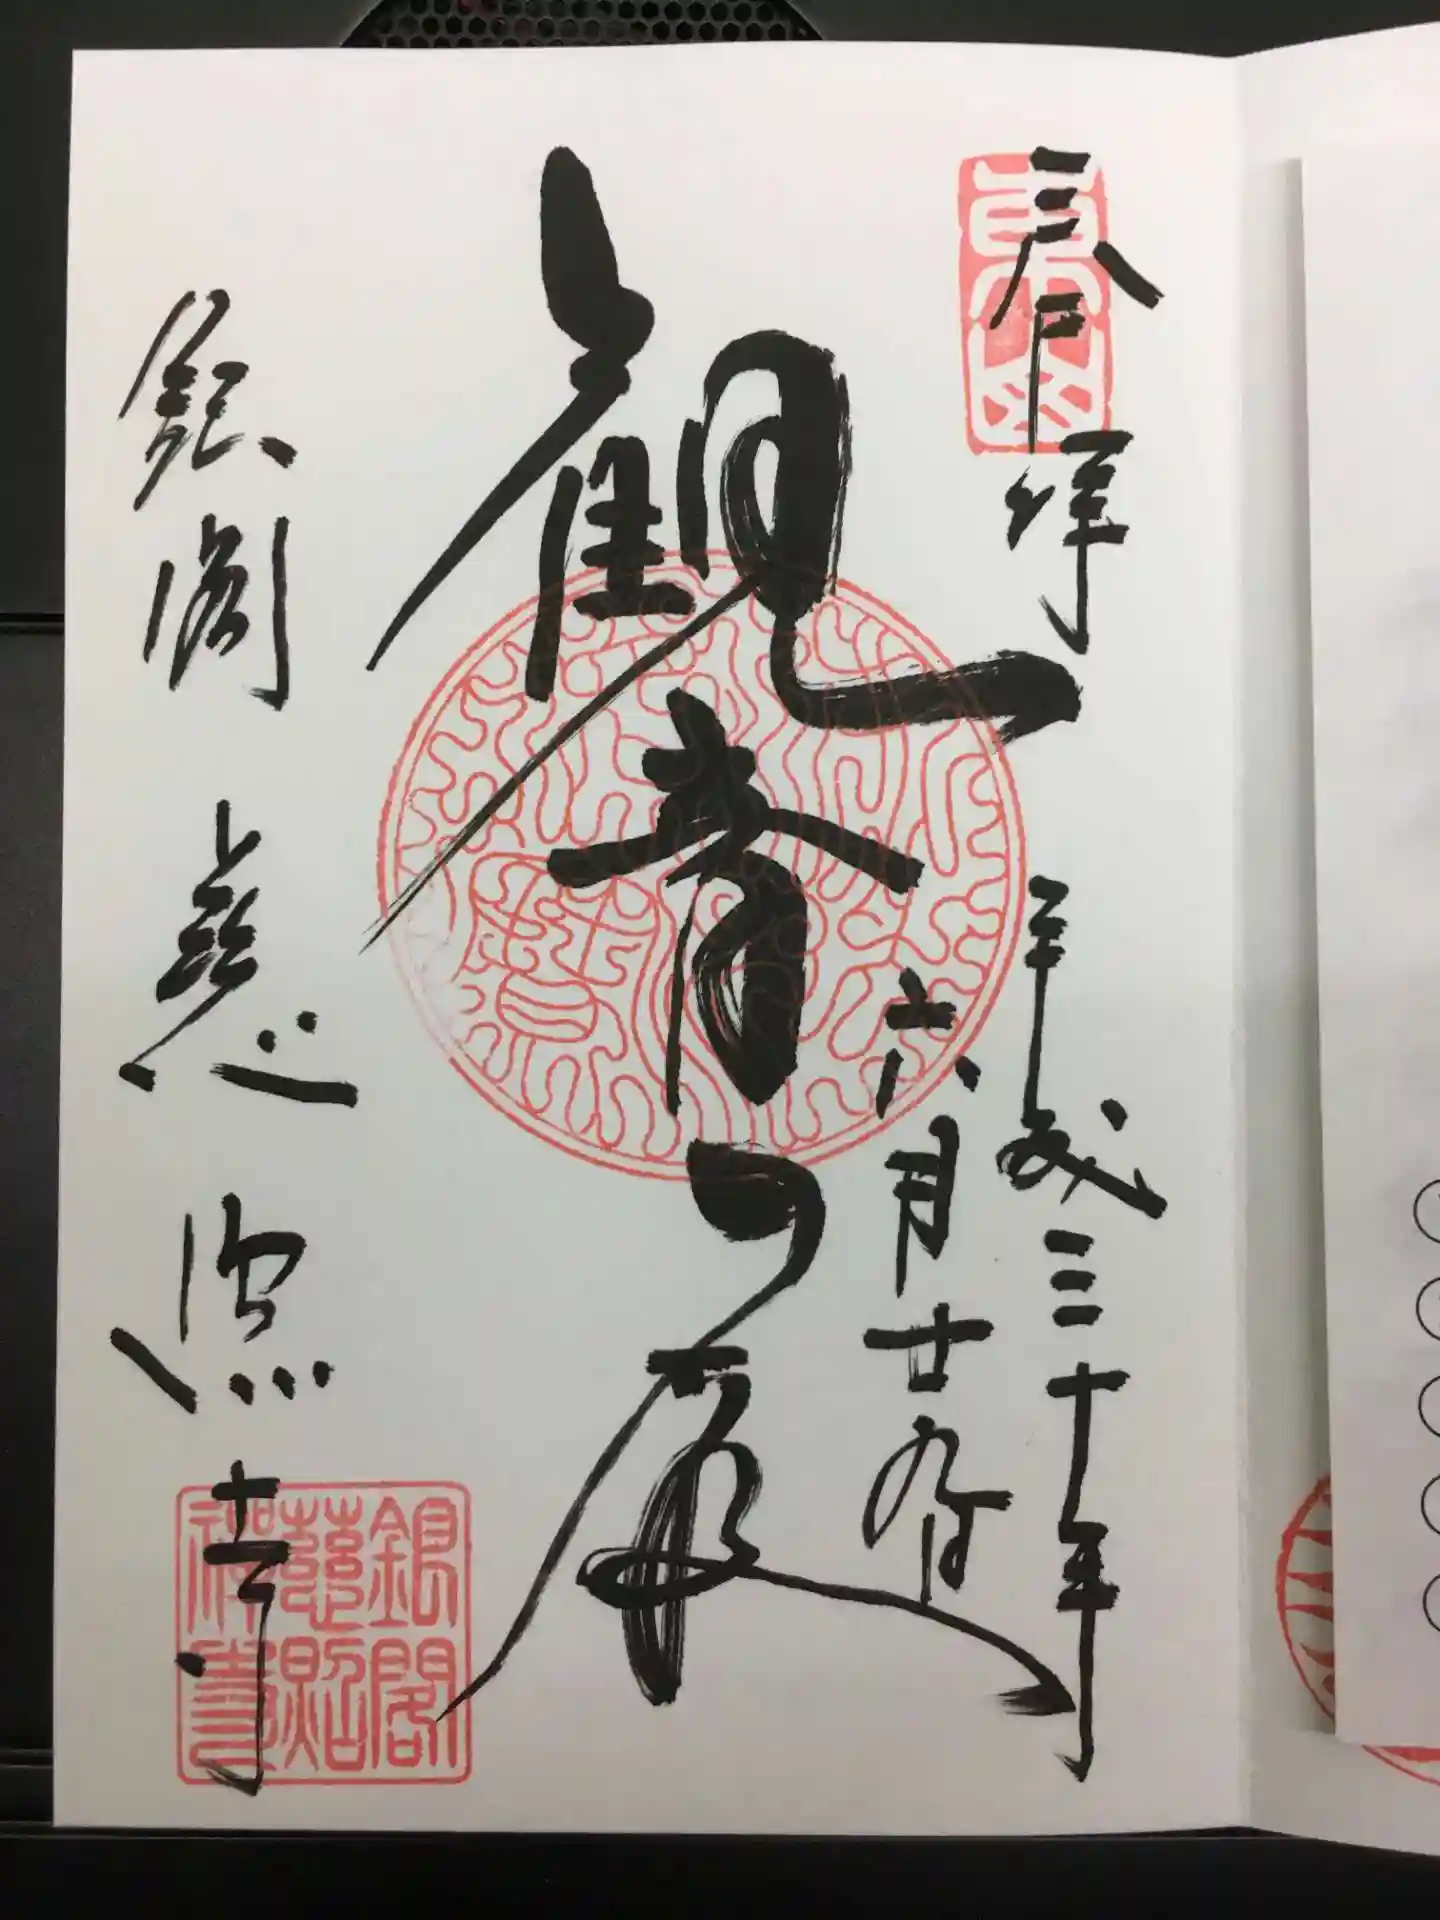 奉拝
東山
平成三十年
六月廿九日
観音殿
銀閣 慈照寺
銀閣
慈照
禅寺